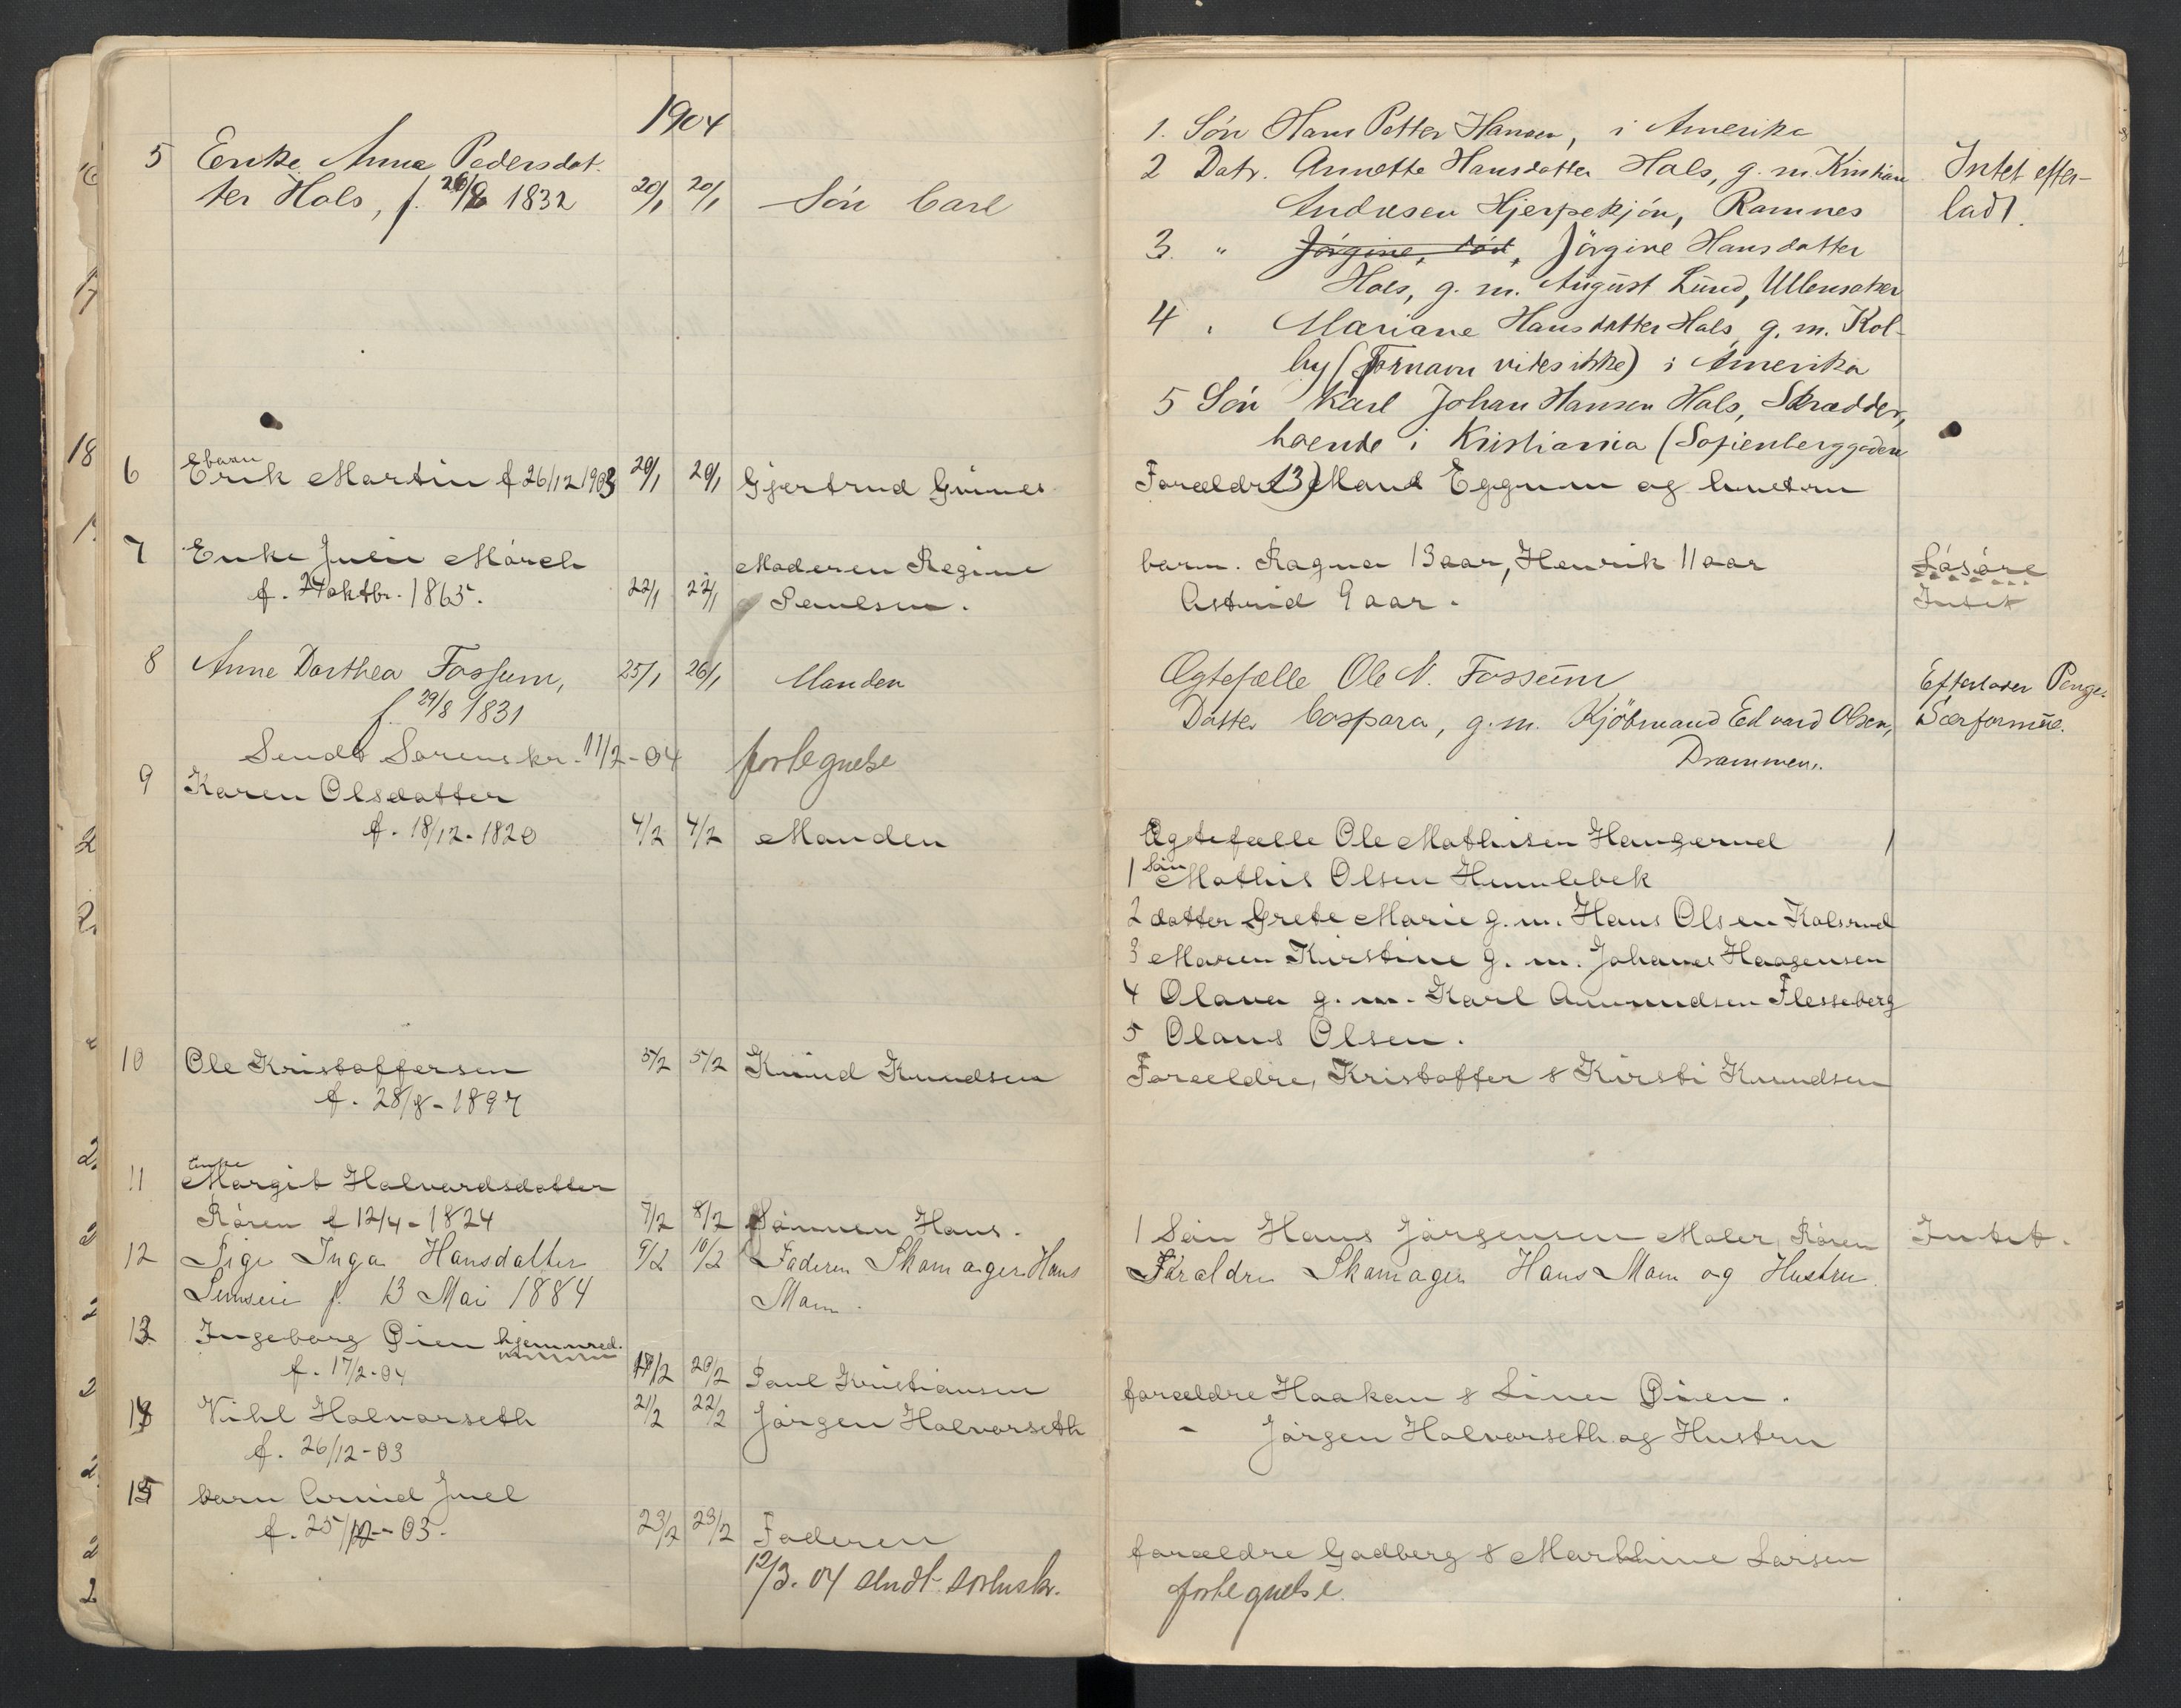 1904
5 Enke Anne Pedersdat-
ter Hals, f. 26/8 1832 20/1 20/1 Søn Carl
1. Søn Hans Petter Hansen, i Amerika
2 Datr. Annette Hansdatter Hals, g. m. Kristian
Andresen Hjerpekjøn, Ramnes
3. " Jørgine, død, Jörgine Hansdatter
Hals, g. m. August Lund, Ullensaker
4 " Mariane Hansdatter Hals, g. m. Kol-
by (Fornavn vides ikke) i Amerika
5 Søn Karl Johan Hansen Hals, Skrædder,
boende i Kristiania (Sofienberggaden
13)
Intet efter-
ladt.
6 barn
Erik Martin f 26/12 1903 20/1 20/1 Gjertrud
Forældre Eggum og hustru
7 Enke Julie Mørch
f. 24 oktbr. 1865. 22/1 22/1 Moderen Regine
Paulsen.
barn. Ragna 13 aar, Henrik 11 aar
Astrid 9 aar.
Løsøre
Intet
8 Anne Dorthea Fossum,
f. 29/8 1831 25/1 26/1 Manden
Ægtefælle Ole N. Fossum
Datter Caspara, g. m. Kjöbmand Edvard Olsen,
Drammen.
Efterlader Penge.
Særformue.
Sendt Sorenskr. 11/2-04 fortegnelse
9 Karen Olsdatter
f. 18/12-1820 4/2 4/2 Manden
Ægtefælle Ole Mathisen Haugerud
1 Søn Mathis Olsen Humlebek
2 datter Grete Marie g. m. Hans Olsen Kolsrud
3 Maren Kirstine g. m. Johanes Haagensen
4 Olava g. m. Karl Amundsen Flesseberg
5 Olaus Olsen.
10 Ole Kristoffersen
f. 28/8-1897 5/2 5/2 Knud Knudsen
Forældre, Kristoffer & Kirsti Knudsen
11 Enke
Margit Halvardsdatter
Røren f 12/4-1824 7/2 8/2 Sønnen Hans.
1 Søn Hans Jørgensen Maler, Røren Intet.
12 Pige Inga Hansdatter
f. 13 Mai 1884 9/2 10/2 Faderen Skomager Hans
Mom.
Forældre Skomager Hans Mom og Hustru.
13 Ingeborg Øien hjemmed.
f. 17/2-04 19/2 20/2 Paul Kristiansen
forældre Haakon & Lina Øien.
14 Vihl Halvorseth
f. 26/12-03 21/2 22/2 Jørgen Halvorseth
- Jørgen Halvorseth og Hustru
15 barn Arvid Juel
f. 25/12-03. 23/2 23/2 Faderen
forældre Godberg & Marthine Larsen
12/3. 04 sendt sorenskr.
fortegnelse.